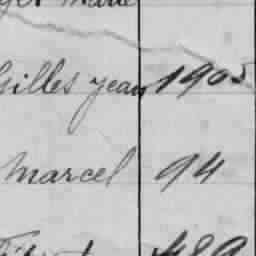 Marie
Gilles jean 1905
Marcel 94
489